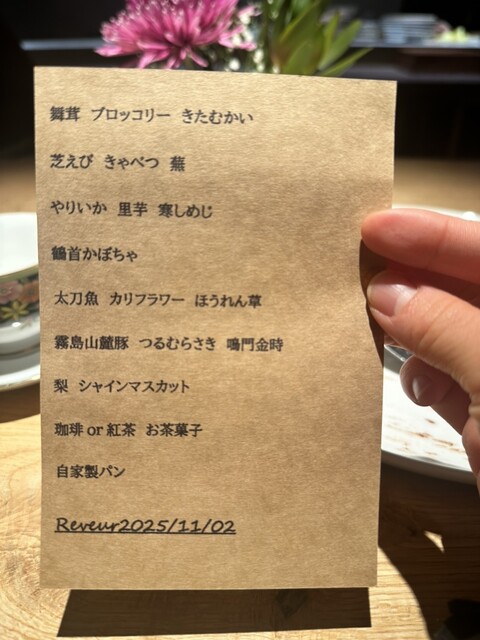 舞茸 ブロッコリー きたむかい
芝えび きゃべつ 蕪
やりいか 里芋 寒しめじ
鶴首かぼちゃ
太刀魚 カリフラワー ほうれん草
霧島山麓豚 つるむらさき 鳴門金時
梨 シャインマスカット
珈琲 or 紅茶 お茶菓子
自家製パン
Reveur2025/11/02